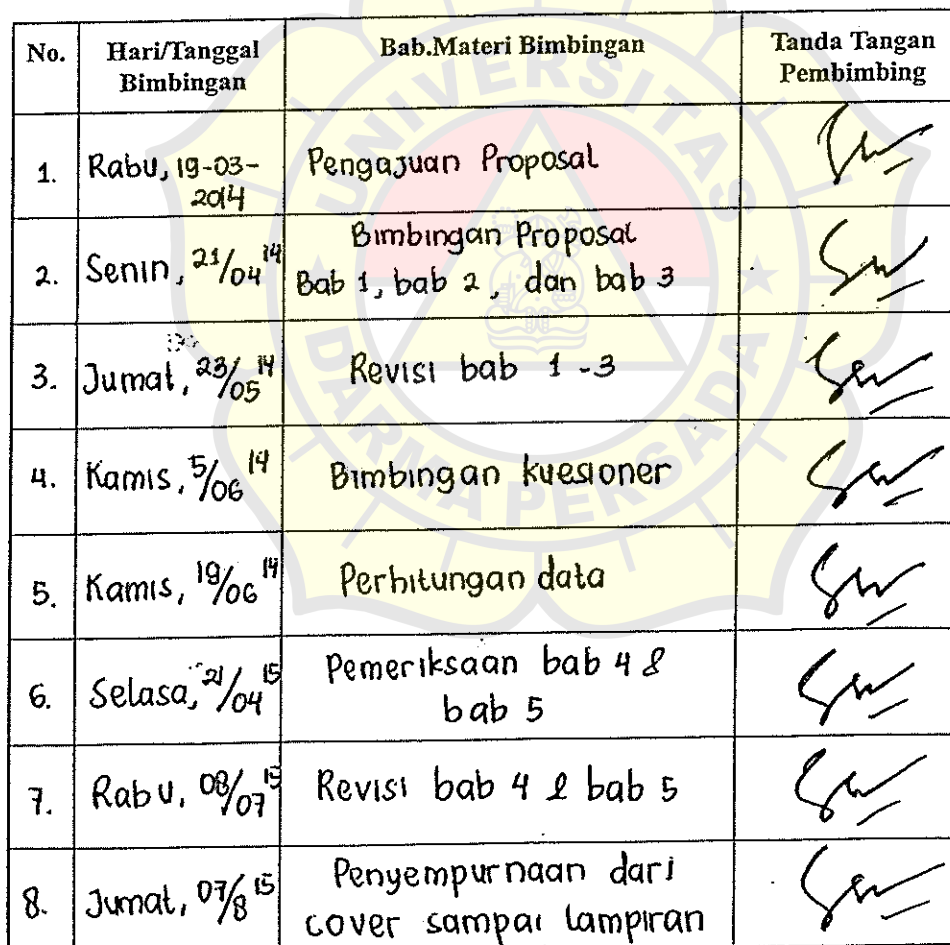 No. Hari/Tanggal Bab.Materi Bimbingan Tanda Tangan
Bimbingan Pembimbing
1. Rabu, 19-03- Pengajuan Proposal
2014
2. Senin, 21/04 14 Bimbingan Proposal
Bab 1, bab 2, dan bab 3
3. Jumat, 23/05 14 Revisi bab 1-3
4. Kamis, 5/06 14 Bimbingan kuesioner
5. Kamis, 19/06 14 Perhitungan data
6. Selasa, 21/04 15 Pemeriksaan bab 4 &
bab 5
7. Rabu, 08/07 15 Revisi bab 4 & bab 5
8. Jumat, 07/8 15 Penyempurnaan dari
cover sampai lampiran
UNIVERSITAS
DARMA PERSADA